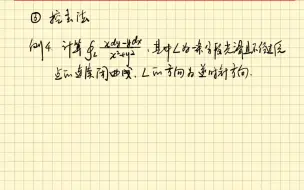 ③ 挖去法
例4. 计算∮_L (xdy-ydx)/(x²+y²), 其中L为一条分段光滑且不经过原
点的连续闭曲线, L的方向为逆时针方向.